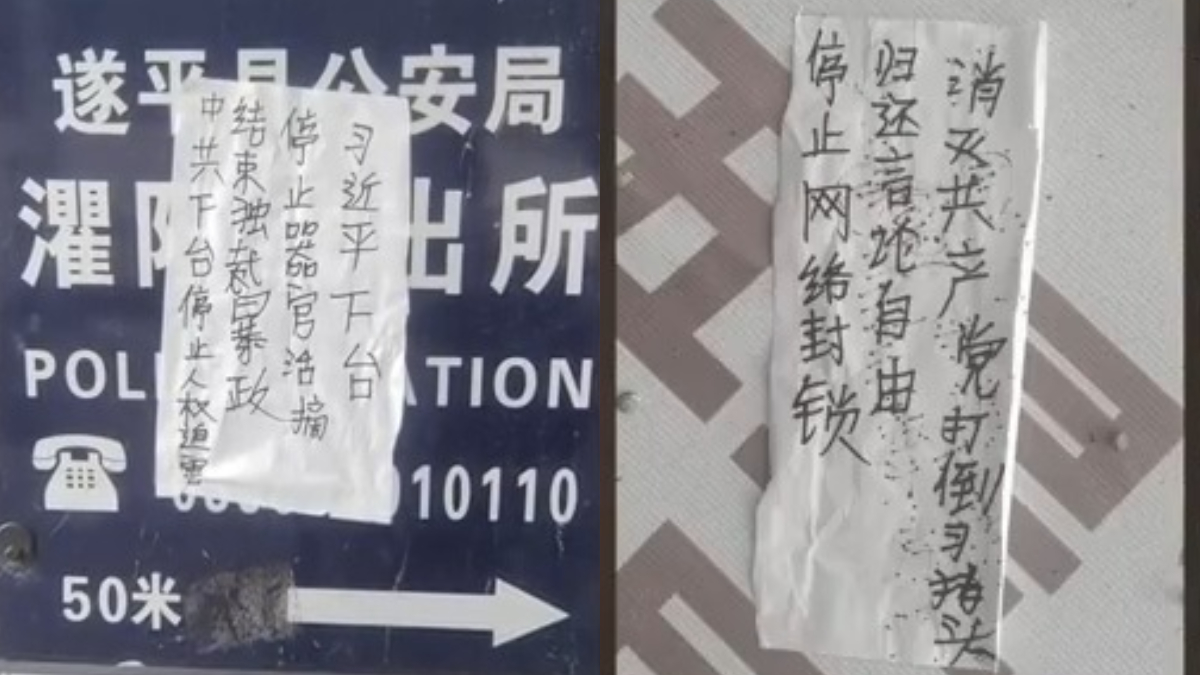 遂平县公安局
灌
出所
POL
ATION
010110
50米
习近平下台
停止器官活摘
结束独裁暴政
中共下台停止人权迫害
消灭共产党打倒习猪头
归还言论自由
停止网络封锁